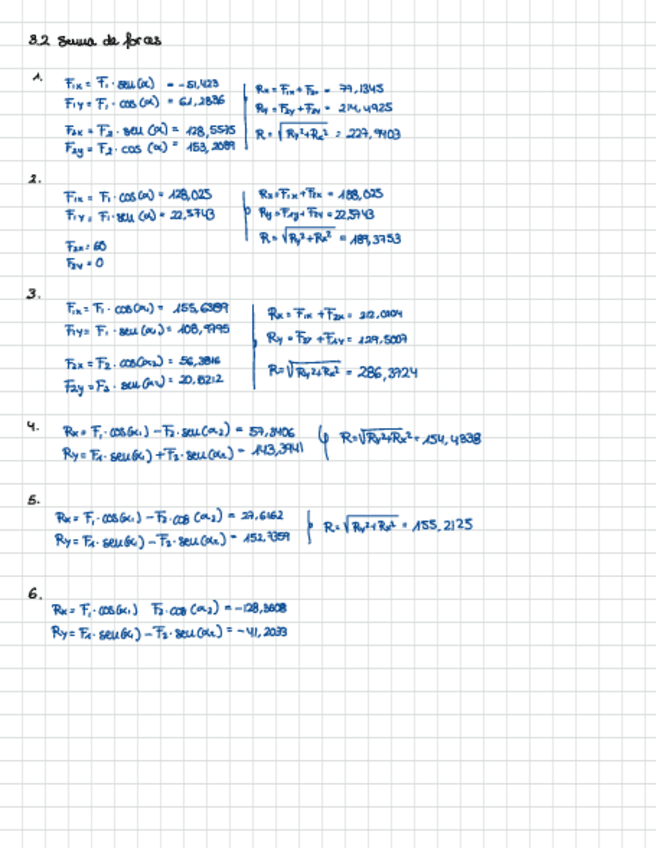 3.2 Suma de forces
1.
F1x = F1 · sen(α) = -51,423
F1y = F1 · cos(α) = 61,2836
F2x = F2 · sen(α) = 128,5575
F2y = F2 · cos(α) = 153,2089
Rx = F1x + F2x = 77,1345
Ry = F2y + F2y = 214,4925
R = √Ry²+Rx² = 227,9403
2.
F1x = F1 · cos(α) = 128,025
F1y = F1 · sen(α) = 22,5743
F2x = 60
F2y = 0
Rx = F1x + F2x = 188,025
Ry = F1y + F2y = 22,5743
R = √Ry²+Rx² = 189,3753
3.
F1x = F1 · cos(α1) = 155,6389
F1y = F1 · sen(α1) = 108,9795
F2x = F2 · cos(α2) = 56,3816
F2y = F2 · sen(α2) = 20,5212
Rx = F1x + F2x = 212,0204
Ry = F2y + F1y = 129,5007
R = √Ry²+Rx² = 286,3724
4.
Rx = F1 · cos(α1) - F2 · sen(α2) = 57,8406
Ry = F1 · sen(α1) + F2 · sen(α2) = 143,3941
R = √Ry²+Rx² = 154,4838
5.
Rx = F1 · cos(α1) - F2 · cos(α2) = 27,6162
Ry = F1 · sen(α1) - F2 · sen(α2) = 152,7359
R = √Ry²+Rx² = 155,2125
6.
Rx = F1 · cos(α1) F2 · cos(α2) = -128,8608
Ry = F1 · sen(α1) - F2 · sen(α2) = -41,2033